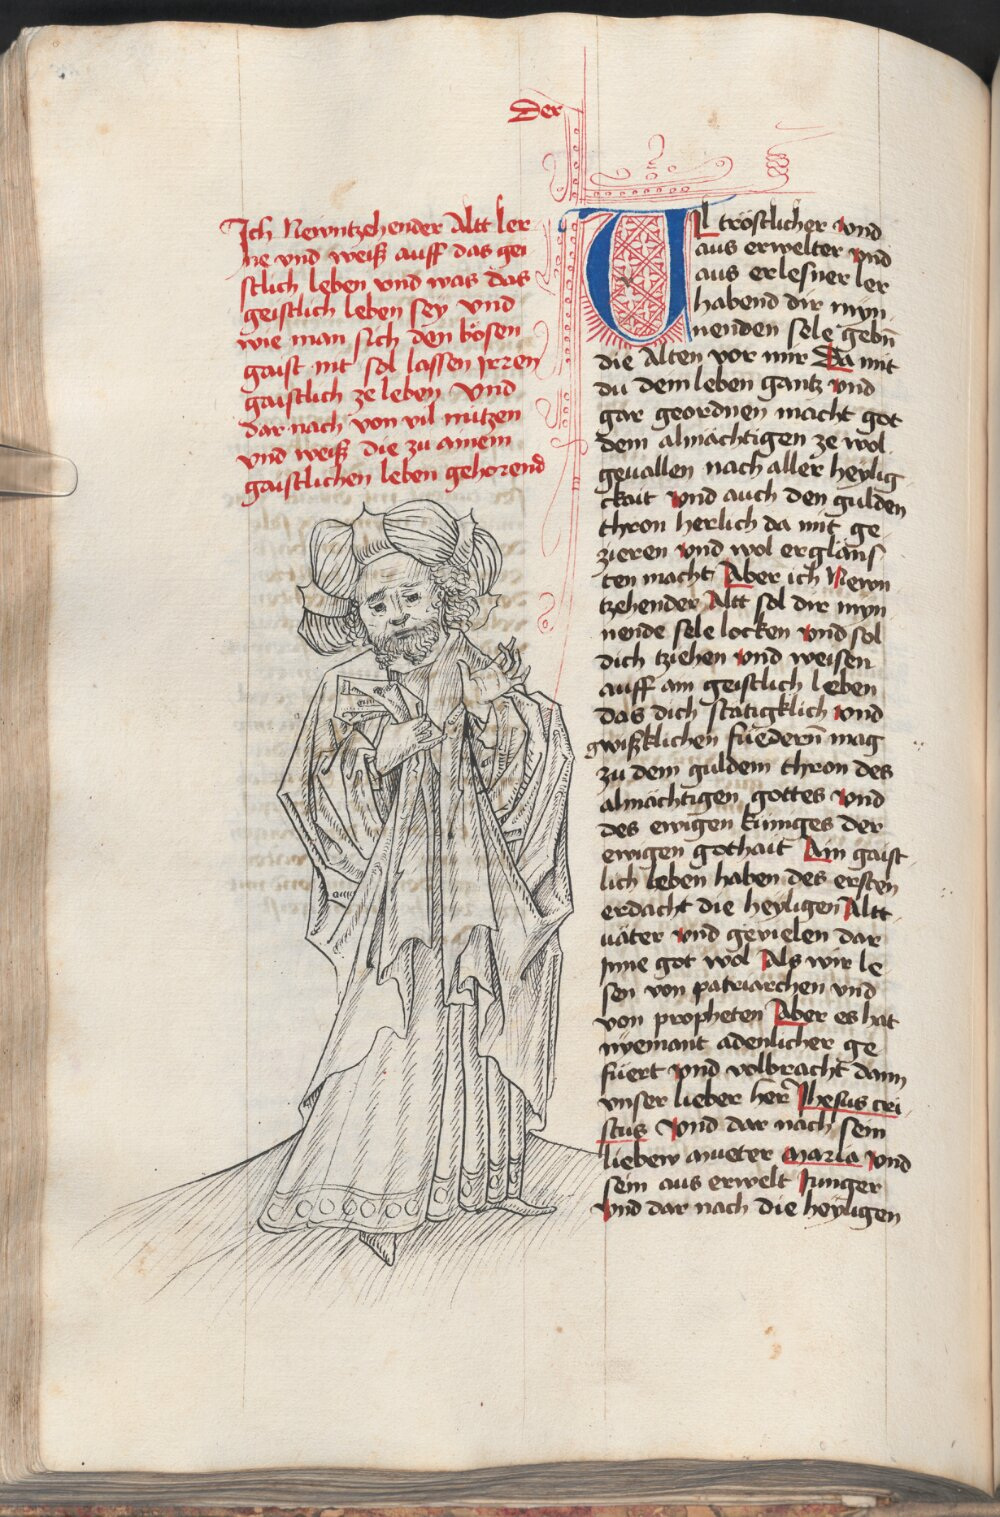 Der
Ich Newntzehender Altt ler
ne vnd weiß auff das gei
stlich leben vnd was das
geistlich leben sey vnd
wie man sich den bösen
gaist nit sol lassen jrren
gaistlich ze leben vnd
dar nach von vil nutzen
vnd weiß die zu ainem
gaistlichen leben gehorend
Vil tröstlicher vnd
aus erwelter vnd
aus erlesner ler
habend dir myn
nenden sele gebn̄
die Alten vor mir Da mit
du dem leben gantz vnd
gar geordnen macht got
dem almächtigen ze wol
geuallen nach aller heylig
ckait vnd auch den gulden
thron herlich da mit ge
zieren vnd wol erglāns
ten macht Aber ich Newn
tzehender Altt sol dir myn
nende sele locken vnd sol
dich tziehen vnd weisen
auff ain geistlich leben
das dich statigklich vnd
gwißklichen füedern̄ mag
zu dem guldem thron des
almächtigen gottes vnd
des ewigen kuniges der
ewigen gothait Ain gaist
lich leben haben des ersten
erdacht die heyligen Altt
uäter vnd geuielen dar
jnne got wol Als wir le
sen von patriarchen vnd
von propheten Aber es hat
nyemant adenlicher ge
füert vnd volbracht dann
vnser lieber her Jhesus cri
stus vnd dar nach sein
liebew mueter maria vnd
sein aus erwelt Junger
vnd dar nach die heyligen